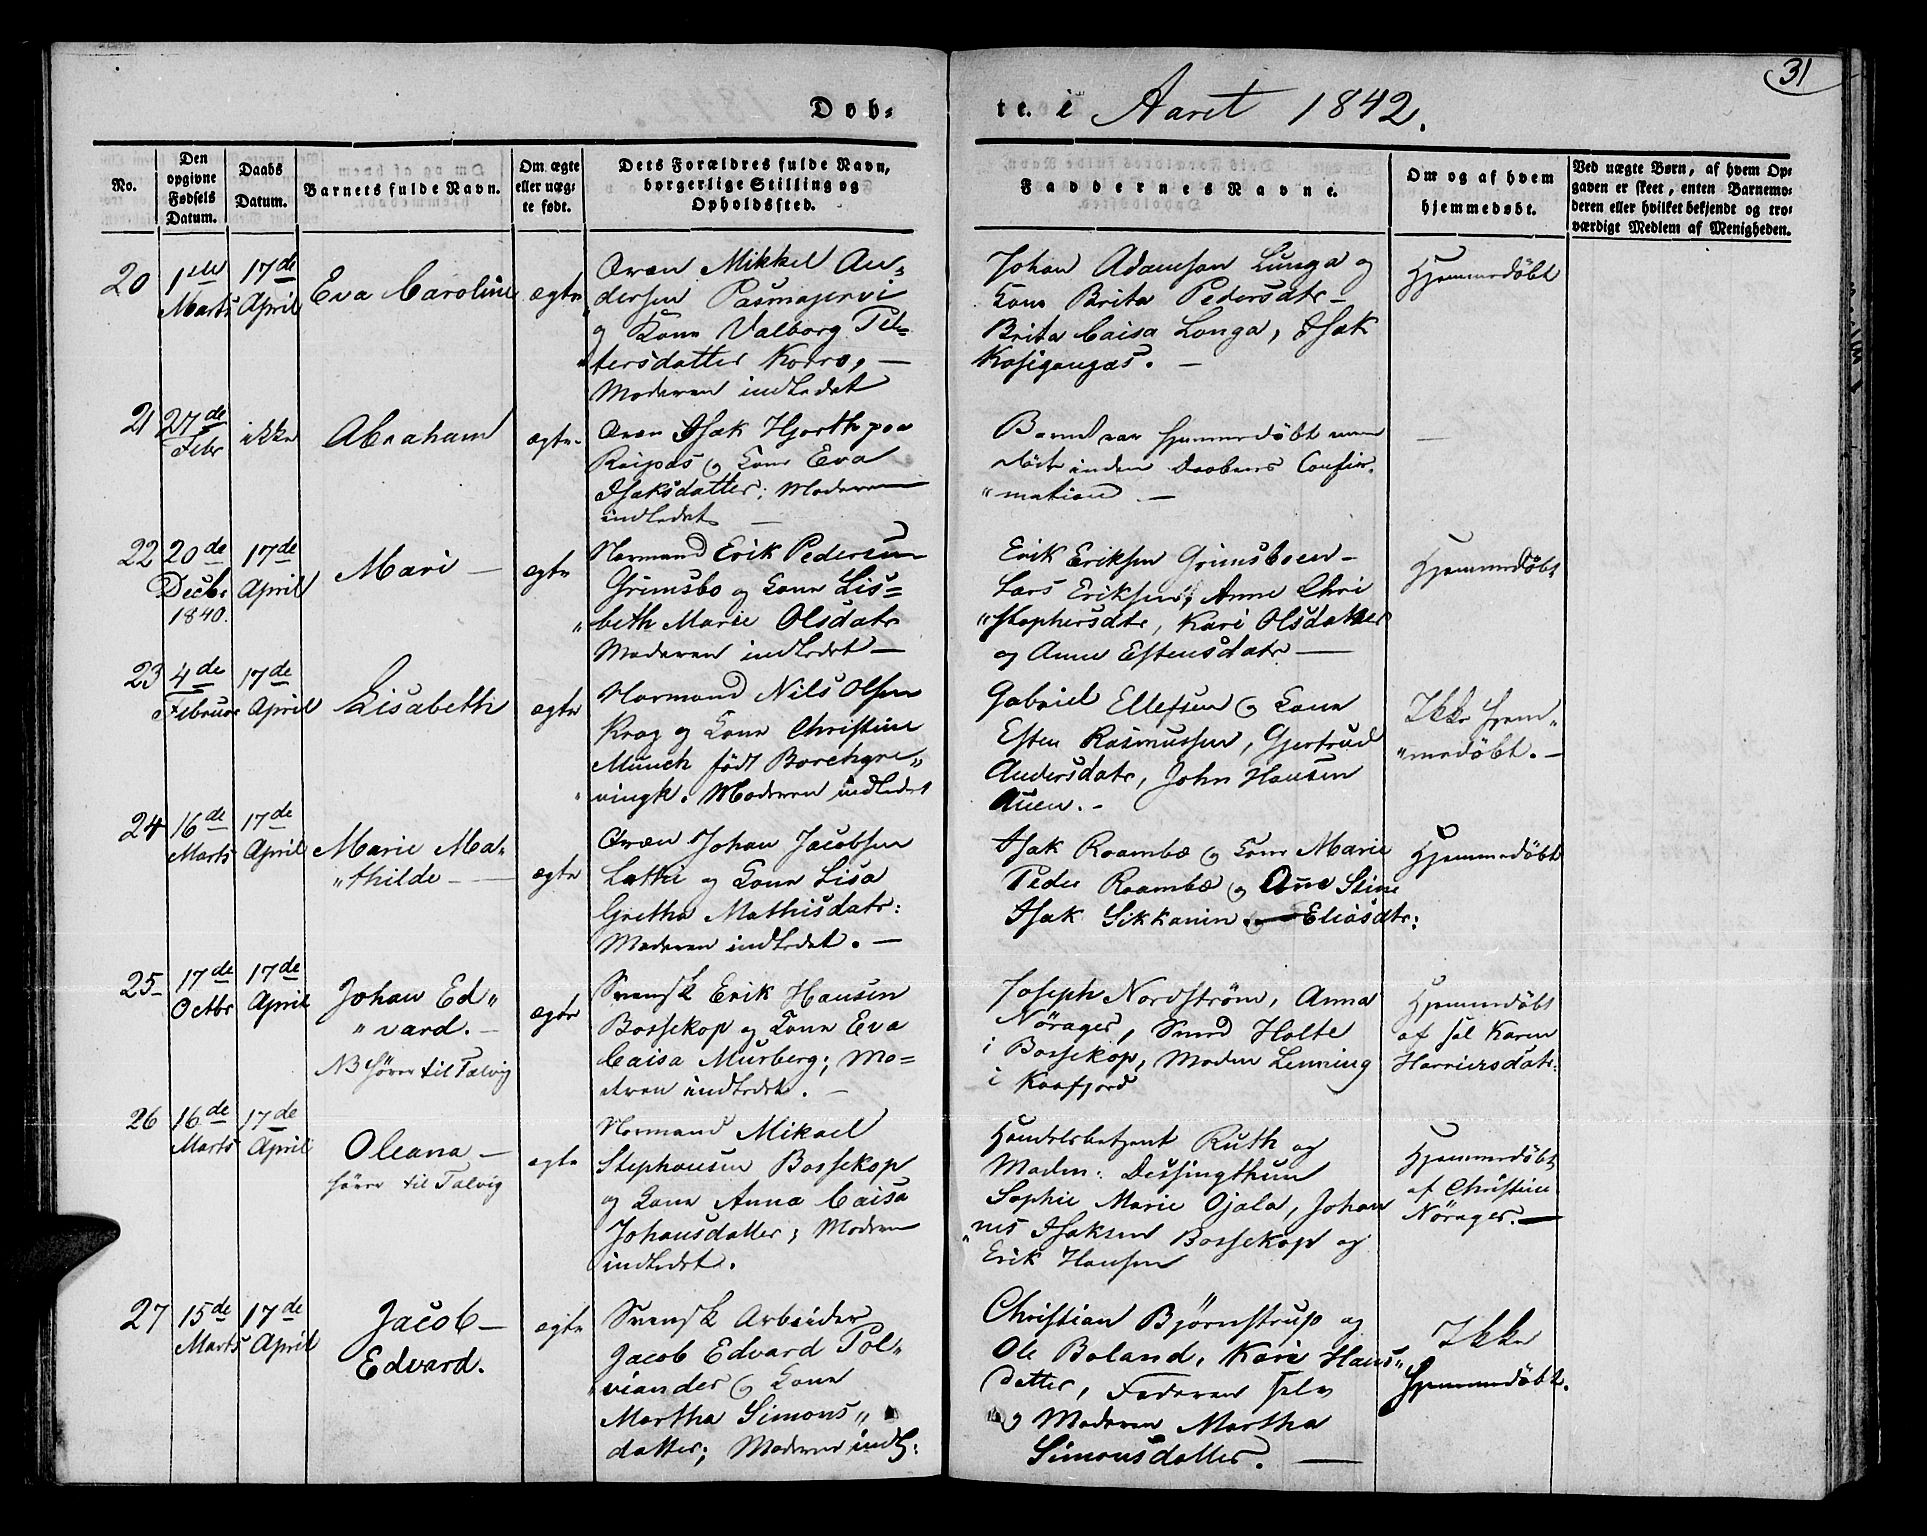 31
Døb- te. i Aaret 1842.
No.
Den opgivne Fødsels Datum.
Daabs Datum.
Barnets fulde Navn.
Om ægte eller uægte født.
Dets Forældres fulde Navn, borgerlige Stilling og Opholdssted.
Faddernes Navne.
Om og af hvem hjemmedøbt.
Ved uægte Børn, af hvem Opgaven er skeet, enten Barnemoderen eller hvilket bekjendt og troværdigt Medlem af Menigheden.
20
1ste
Marts
17de
April
Eva Caroline
ægte
Qvæn Mikkel An-
dersen Pasmajervi
og Kone Valborg Pet-
"tersdatter Korro, —
Moderen indledet
Johan Adamsen Lunga og
Kone Brita Pedersdtr —
Brita Caisa Longa, Isak
Kosigangas. —
Hjemmedøbt
21
27de
Febr
ikke
Abraham
ægte
Qvæn Isak Hjorth paa
Raipas og Kone Eva
Isaksdatter; Moderen
indledet —
Barnet var hjemmedøbt men
døde inden Daabens Confir-
"mation. —
—
22
20de
Decbr
1840.
17de
April
Mari —
ægte
Normand Erik Pedersen
Grimsbo og Kone Lis=
"beth Marie Olsdatr
Moderen indledet —
Erik Eriksen Grimsboen —
Lars Eriksen, Anne Chri
"stophersdtr, Kari Olsdatter
og Anne Estensdatr —
Hjemmedøbt
23
4de
Februar
17de
April
Lisabeth
ægte
Normand Nils Olsen
Krog og Kone Christine
Munch født Borchgre"
"vingk. Moderen indledet
Gabriel Ellefsen og Kone
Esten Rasmussen, Gjertrud
Andersdatr, John Hansen
Auen. -
Ikke hjem"
"medøbt. —
24
16de
Marts
17de
April
Marie Ma"
"thilde —
ægte
Qvæn Johan Jacobsen
Lathi og Kone Lisa
Gretha Mathisdatr:
Moderen indledet. —
Isak Raambæ og Kone Marie
Peder Raambæ og Ane Stine
Isak Sikkanin Eliasdtr:
Hjemmedøbt
25
17de
Octbr
17de
April
Johan Ed"
"vard. —
NB hører til Talvig
ægte
Svensk Erik Hansen
Bossekop og Kone Eva
Caisa Murberg; Mo=
deren indledet. —
Joseph Nordstrøm, Anna
Nørager, Smed Holte
i Bossekop, Madm Lenning
i Kaafjord
Hjemmedøbt
af sal Karen
Harriersdatr:
26
16de
Marts
17de
April
Oleana —
hører til Talvig
ægte
Normand Mikael
Stephansen Bossekop
og Kone Anna Caisa
Johansdatter; Moderen
indledet.
Handelsbetjent Ruth og
Madm: Dessingthun
Sophie Marie Ojala, Johan
"nes Isaksen Bossekop og
Erik Hansen
Hjemmedøbt
af Christine
Nørager. —
27
15de
Marts
17de
April
Jacob —
Edvard.
ægte
Svensk Arbeider
Jacob Edvard Pol"
viander og Kone
Martha Simons"
datter; Moderen indl:
Christian Bjørnstrup og
Ole Boland, Kari Hans"
datter, Faderen selv
og Moderen Martha
Simonsdatter. —
Ikke
hjemmedøbt.